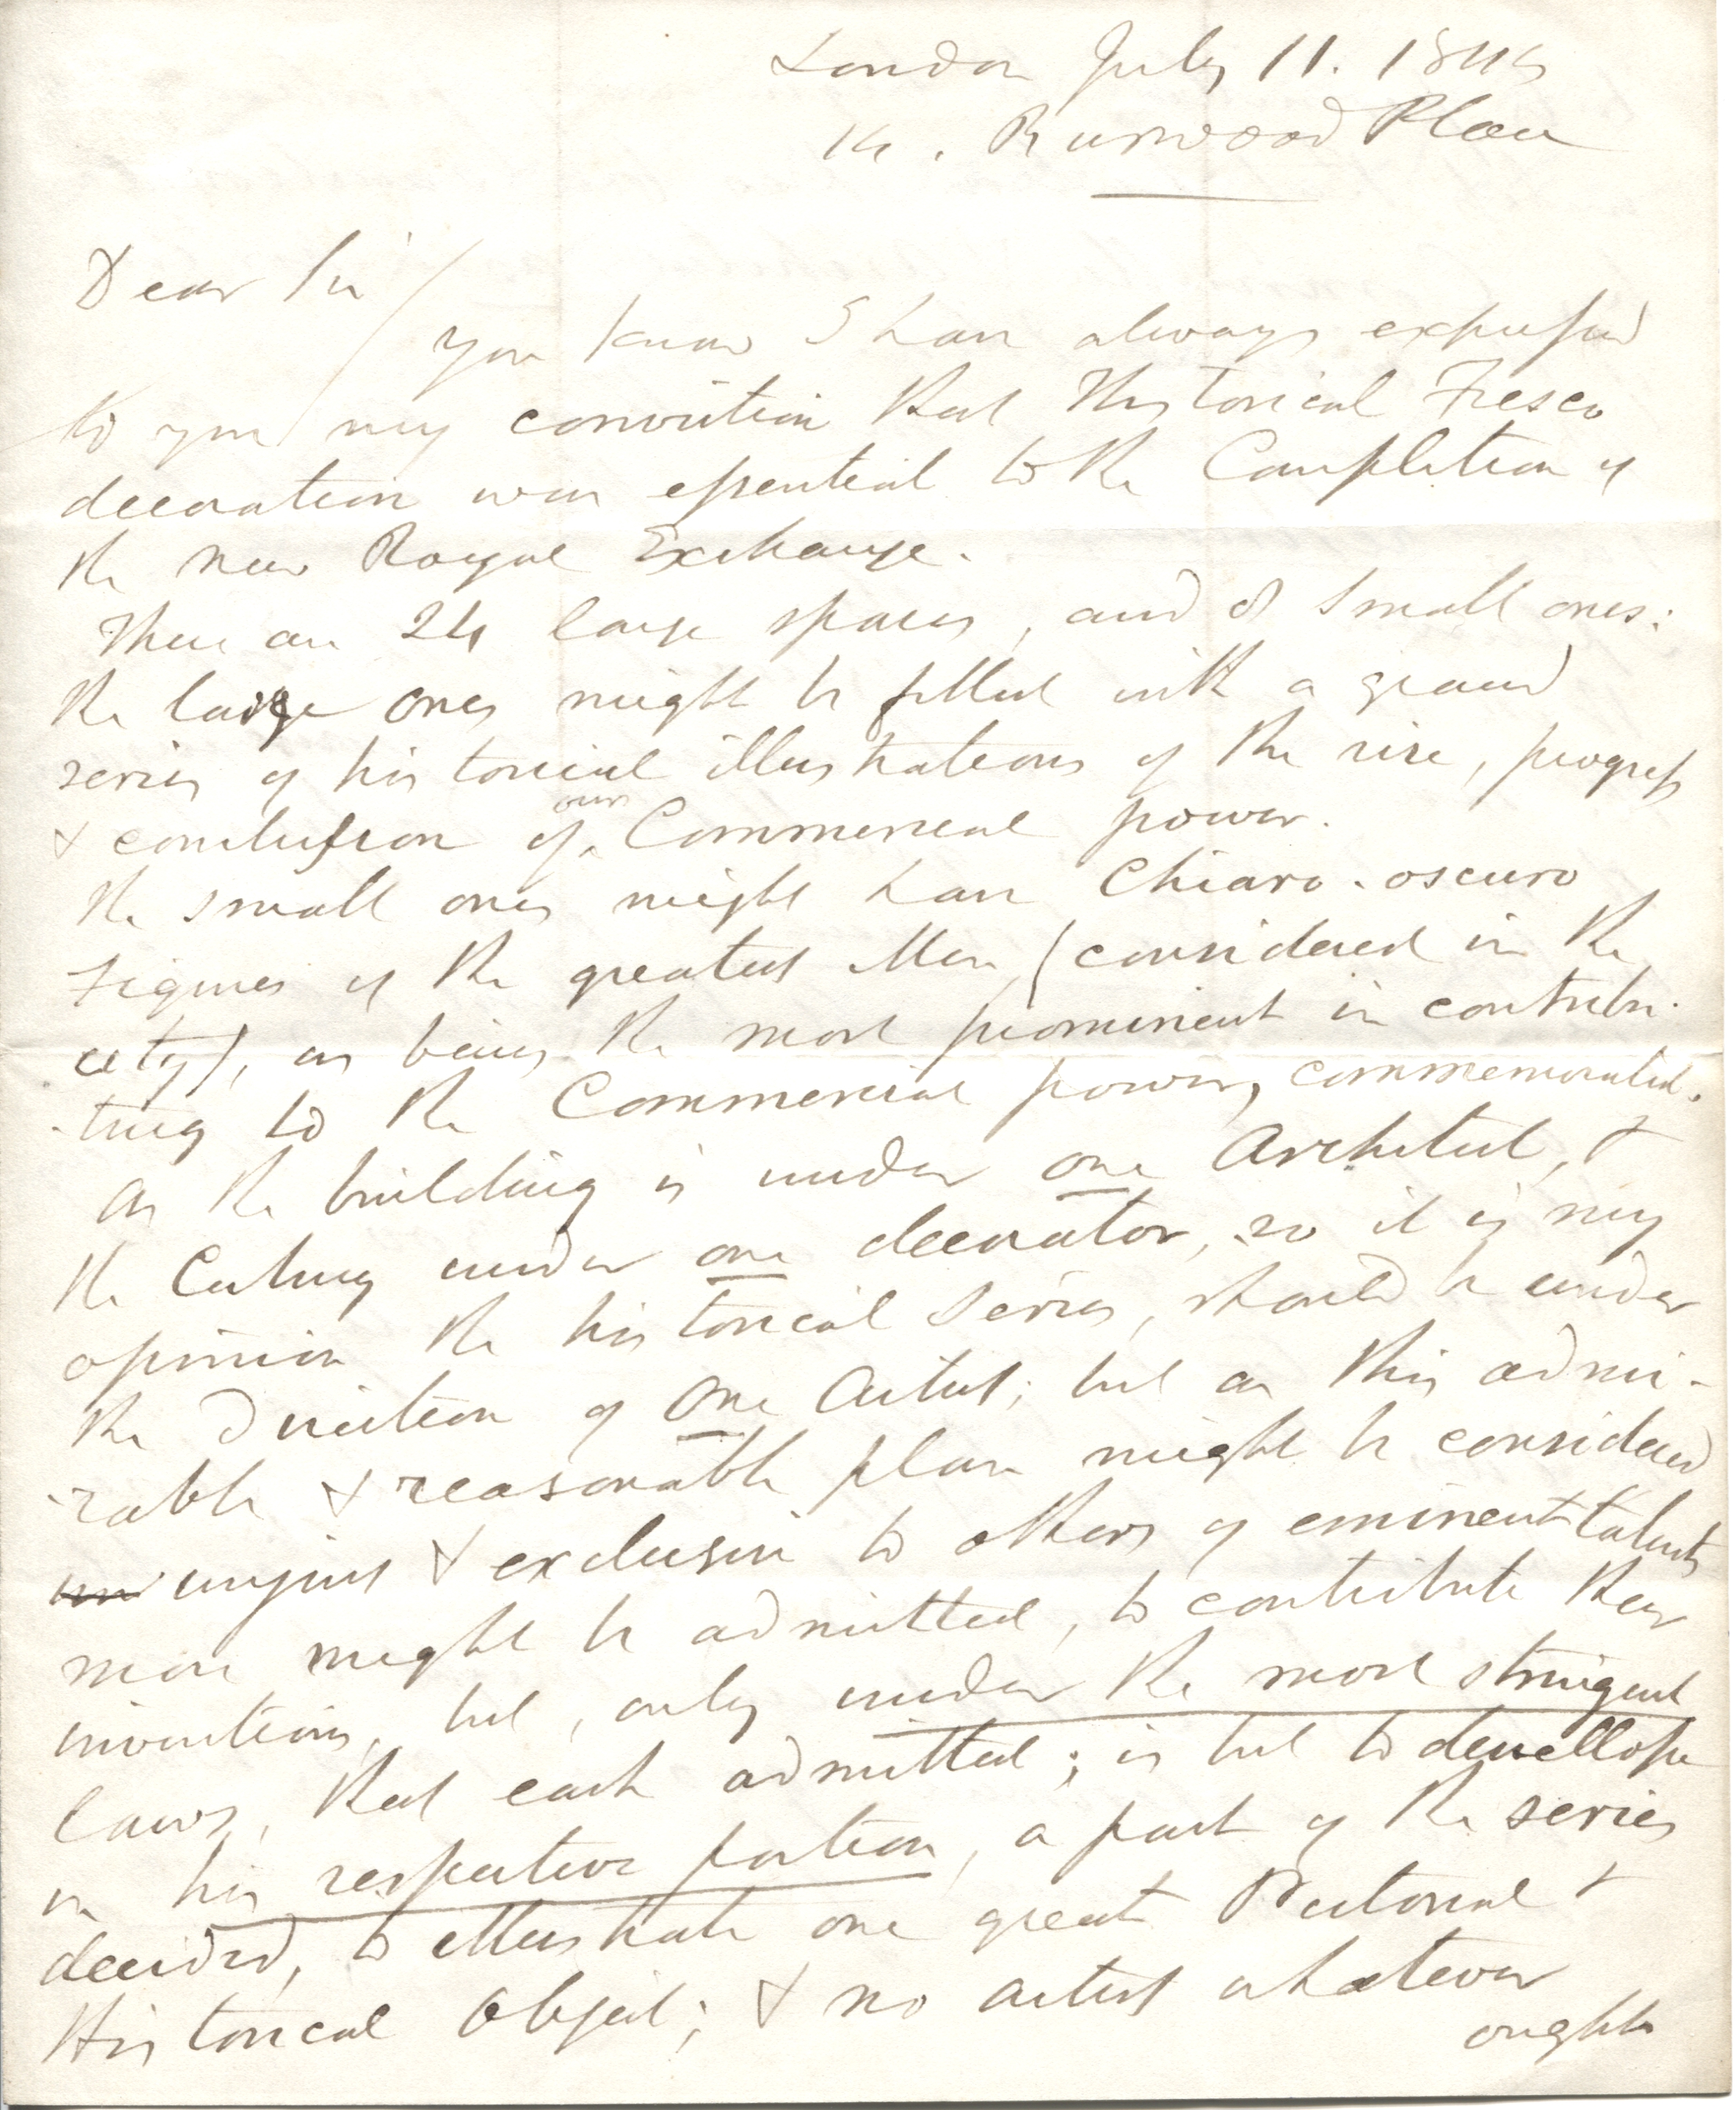 London July 11. 1845
14. Burwood Place
Dear Sir/
you know I have always expressed
to you my conviction that Historical Fresco
decoration was essential to the Completion of
the new Royal Exchange.
There are 24 large spaces, and 8 small ones:
the large ones might be filled with a grand
series of historical illustrations of the rise, progress
& conclusion of our Commercial power.
the small ones might have Chiaro-oscuro
Figures of the greatest Men (considered in the
city), as being the most prominent in contribu-
-ting to the Commercial power, commemorated.
as the building is under one Architect, &
the Ceiling under one decorator, so it is my
opinion the historical series, should be under
the direction of One Artist; but as this admi-
-rable & reasonable plan might be considered
un unjust & exclusive to others of eminent talents
more might be admitted, to contribute their
inventions, but, only under the most stringent
laws, that each admitted; is but to devellope
in his respective portion, a part of the series
decided, to illustrate one great Pictorial &
Historical Object; & no artist whatever
ought